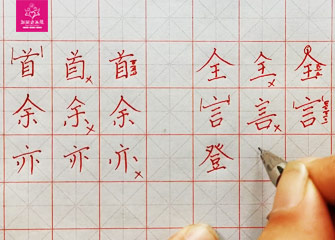 首 首 首 全 全 全
余 余 余 言 言 言
亦 亦 亦 登